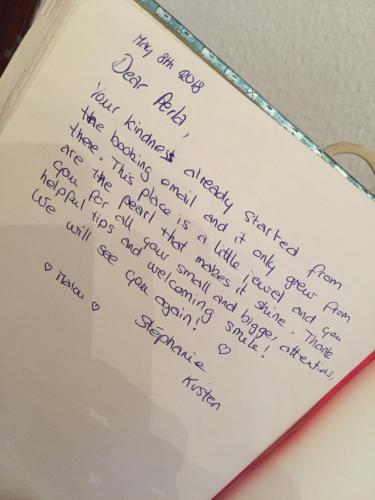 May 8th 2018
Dear Perla,
Your kindness already started from
the booking email and it only grew from
there. This place is a little jewel and you
are the pearl that makes it shine. Thank
you for all your small and bigger attentions,
helpful tips and welcoming smile!
We will see you again! ♡
♡ Malou ♡
Stéphanie
Kirsten